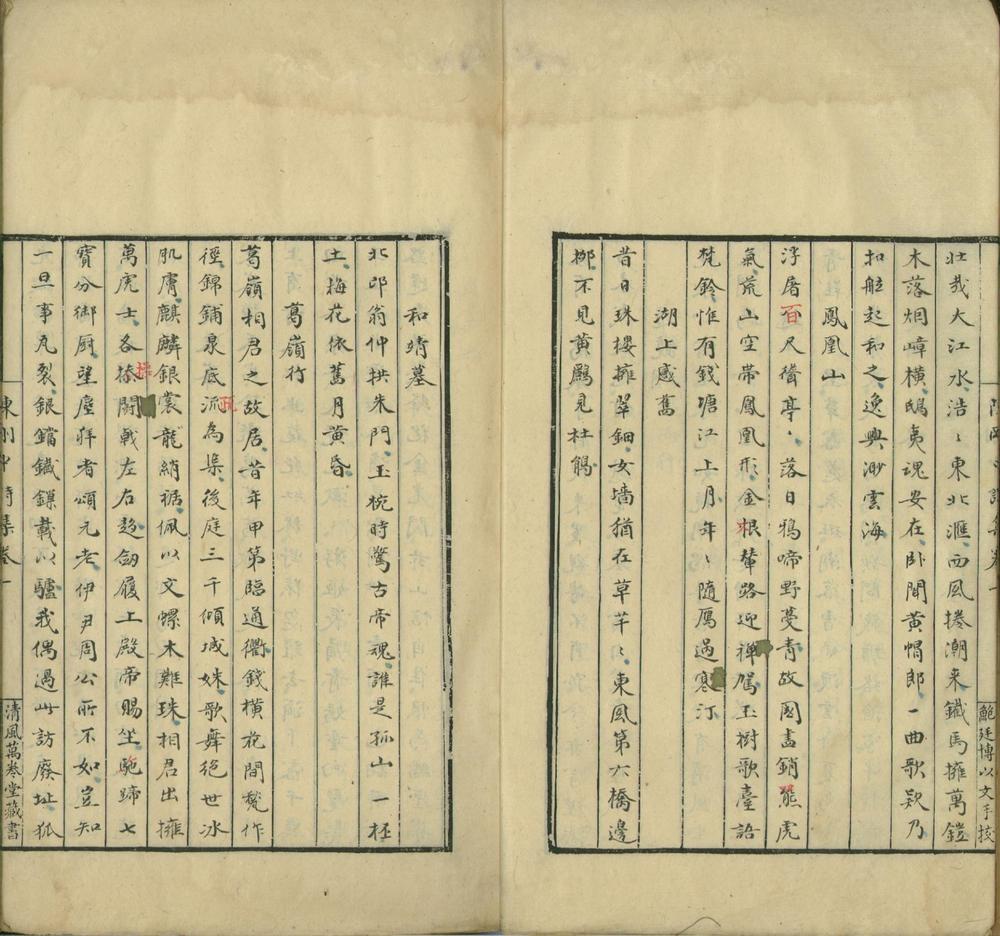 鮑廷博以文手校
壯哉大江水浩〻東北滙西風捲潮來鐵馬擁萬鎧
木落烟嶂橫鴟夷魂安在卧聞黃帽郎一曲歌欵乃
扣舷起和之逸興渺雲海
鳳凰山
浮屠百尺聳亭〻落日鴉啼野蔓青故國畫銷熊虎
氣荒山空帶鳳凰形金根輦路迎禪駕玉樹歌臺語
梵鈴惟有錢塘江上月年〻隨鴈過寒汀
湖上感舊
昔日珠樓擁翠鈿女墻猶在草芊〻東風第六橋邊
柳不見黃鸝見杜鵑
和靖墓
北邙翁仲拱朱門玉椀時驚古帝魂誰是孤山一抔
土梅花依舊月黃昏
葛嶺行
葛嶺相君之故居昔年甲第臨通衢錢橫花間甃作
徑錦鋪泉底派為渠後庭三千傾城姝歌舞絕世冰
肌膚麒麟銀裳龍綃裾佩以文螺木難珠相君出擁
萬虎士各捺鬭戰左右趍劒履上殿帝賜坐馳蹄七
寶分御厨望塵拜者頌元老伊尹周公所不如豈知
一旦事瓦裂銀鐺鐵鏁載以驢我偶過此訪廢址狐
詩集卷一
清風萬卷堂藏書